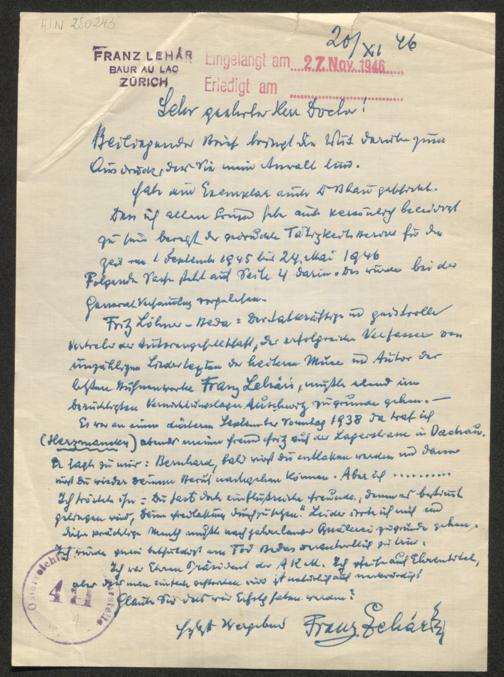 HIN 250243
20/XI 46
FRANZ LEHÁR
BAUR AU LAC
ZÜRICH
Eingelangt am 27. Nov. 1946
Erledigt am
Sehr geehrter Herr Doctor!
Beiliegender Brief bringt die
Ausdruck, der Sie mein Anwalt
Habe ein Exemplar auch Dr Blau geschickt.
Dass ich allen Grund habe auch persönlich beleidigt
zu sein beweist der gedruckte Tätigkeitsbericht für die
Zeit von 1 September 1945 bis 24. Mai 1946
Folgende Sache steht auf Seite 4 darin. Das wurde bei der
General Versammlung vorgelesen.
Fritz Löhner-Beda: Der tatkräftige und geistvolle
Vertreter der Autorengesellschaft, der erfolgreiche Verfasser von
unzähligen Liedertexten der heiteren Muse und Autor der
letzten Bühnenwerke Franz Lehárs, mußte elend im
berüchtigten Vernichtungslager Auschwitz zugrunde gehen. —
Es war an einem düsteren September Sonntag 1938 da traf ich
(Herzmansky) abends meinen Freund Fritz auf der Lagerstrasse in Dachau.
Er sagte zu mir: Bernhard, bald wirst Du entlassen werden und dann
wirst Du wieder Deinem Beruf nachgehen können. Aber ich ..........
Ich tröstete ihn: Du hast doch einflußreiche Freunde, denen es bestimmt
gelingen wird, Deine Freilassung durchzusetzen." Leider irrte ich mich und
dieser prächtige Mensch mußte nach jahrelanger Quälerei zugrunde gehen.
Ich würde quasi am Tod Bedas verantwortlich zu sein.
Ich war Ehren Präsident der A.K.M. Ich auf Ehrentitel,
aber daß man einfach wird ist natürlich
Glauben Sie daß wir Erfolg haben werden?
Ergebend Franz Lehár
4